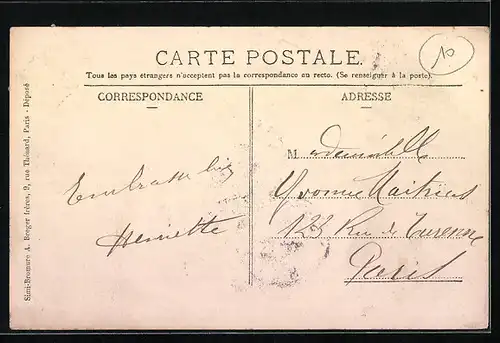 CARTE POSTALE.
Tous les pays étrangers n'acceptent pas la correspondance au recto. (Se renseigner à la poste).
CORRESPONDANCE
ADRESSE
10
Mademoiselle
Yvonne Mathieu
122 Rue de Turenne
Paris
Henriette
Simi-Bromure A. Breger frères, 9, rue Thénard, Paris - Déposé